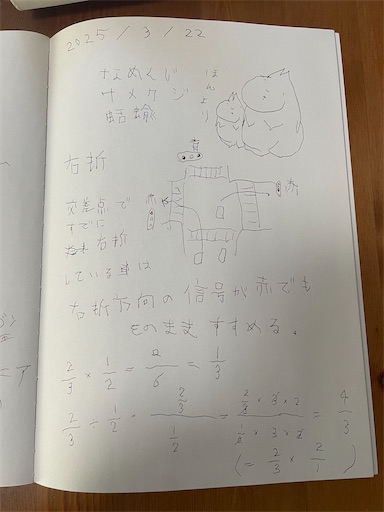 2025/3/22
なめくじ
ナメクジ
蛞蝓
ほんより
青
右折
赤
赤
交差点で
すでに
右折
している車は
右折方向の信号が赤でも
そのまますすめる。
2/3 × 1/2 = 2/6 = 1/3
2/3 ÷ 1/2 = (2/3)/(1/2) = (2/3 × 3 × 2)/(1/2 × 3 × 2) = 4/3
(= 2/3 × 2/1)